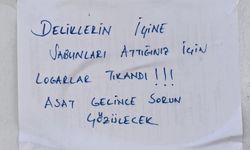 DELİKLERİN İÇİNE
SABUNLARI ATTIĞINIZ İÇİN
LOGARLAR TIKANDI !!!
ASAT GELİNCE SORUN
ÇÖZÜLECEK